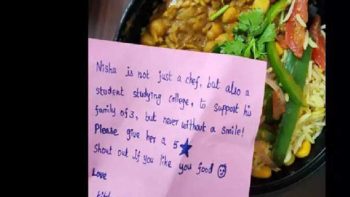 Nisha is not just a chef, but also a
student studying college, to support his
family of 3, but never without a smile!
Please give her a 5
shout out if you like you food
Love